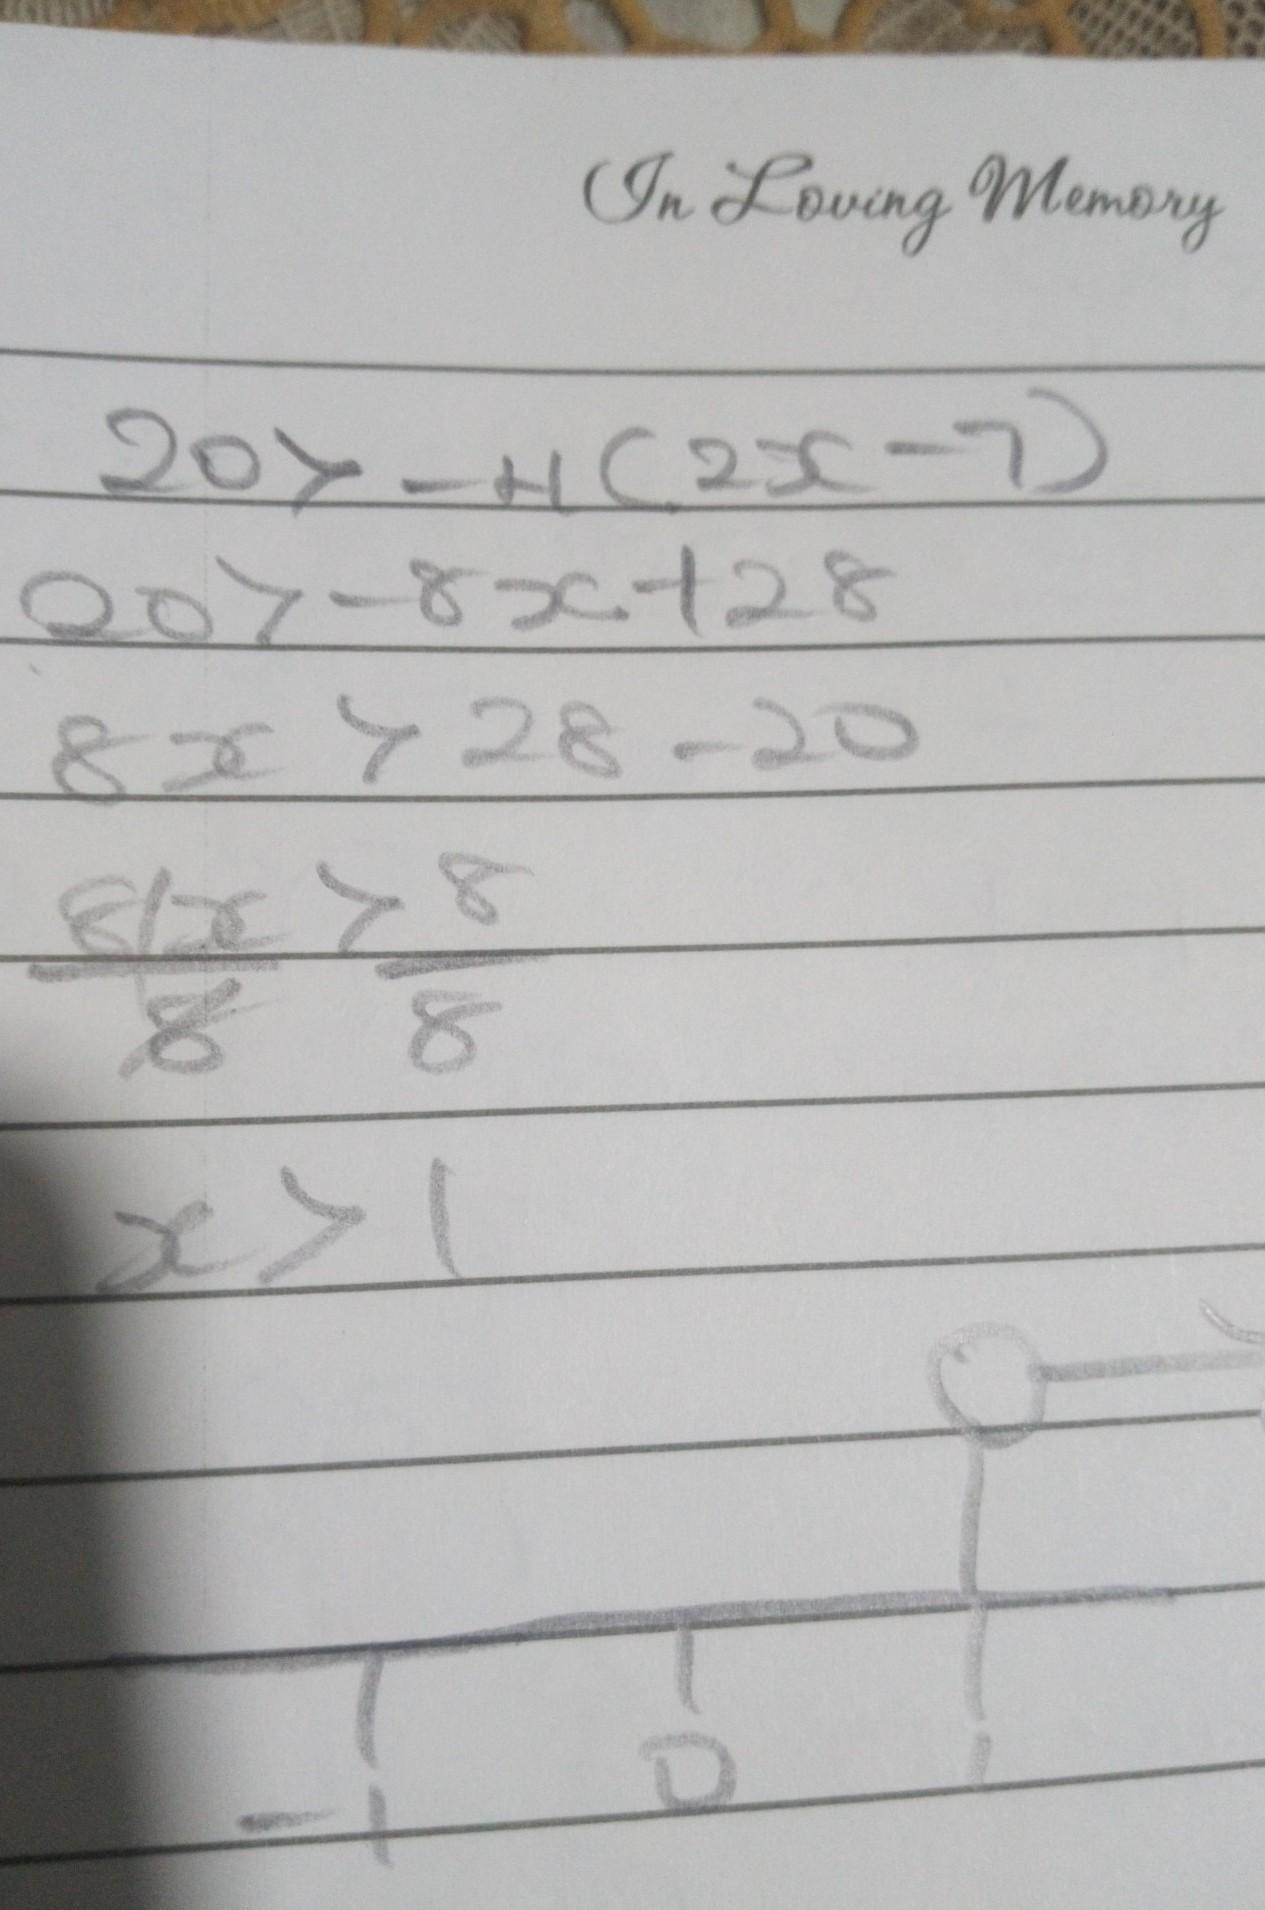 In Loving Memory
20 > -4(2x - 7)
20 > -8x + 28
8x > 28 - 20
8x/8 > 8/8
x > 1
-1 0 1